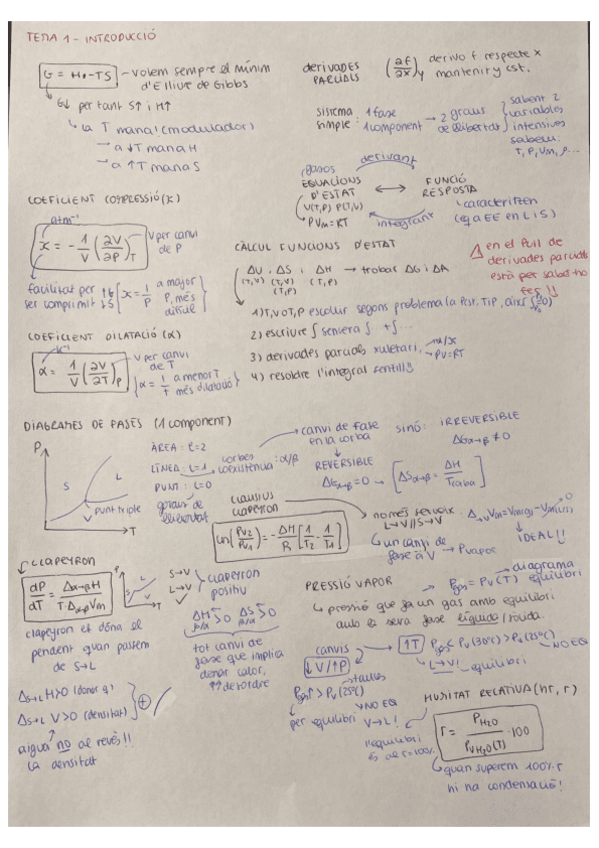 TEMA 1 - INTRODUCCIÓ
G = H - TS - volem sempre el mínim
d'E lliure de Gibbs
G↓ per tant S↑ i H↑
↳ la T mana (modulador)
→ a ↓T mana H
→ a ↑T mana S
DERIVADES PARCIALS (∂f/∂x)y derivo f. respecte x
mantenir y cst.
sistema simple: 1 fase
1 component → 2 graus de llibertat
sabent 2 variables intensives sabem: T, P, Vm, ρ...
derivant
gasos
EQUACIONS D'ESTAT ↔ FUNCIÓ RESPOSTA
V(T,P) P(T,V)
PVm = RT
integrant
caracteritzen
(eq a EE en L i S)
COEFICIENT COMPRESSIÓ (χ)
atm⁻¹
χ = - 1/V (∂V/∂P)T
V per canvi de P
facilitat per ser comprimit
χ = 1/P a major P, més difícil
COEFICIENT DILATACIÓ (α)
K⁻¹
α = 1/V (∂V/∂T)P
V per canvi de T
α = 1/T a menor T més dilatació
CÀLCUL FUNCIONS D'ESTAT
ΔU i ΔS i ΔH → trobar ΔG i ΔA
(T,V) (T,V) (T,P)
(T,P)
1) T,V o T,P escollir segons problema
2) escriure ∫ sencera ∫ + ∫...
3) derivades parcials xuletari
α/χ
PV=RT
4) resoldre l'integral sencilly
Δ en el full de
derivades parcials
està per saber-ho
fer!!
DIAGRAMES DE FASES (1 component)
P
S
L
V
punt triple
T
ÀREA: ℓ=2
LÍNEA: ℓ=1
corbes coexistència: α/β
PUNT: ℓ=0
graus de llibertat
canvi de fase
en la corba
REVERSIBLE
ΔGα→β = 0 → [ΔSα→β = ΔH/Tcanvi]
sinó: IRREVERSIBLE
ΔGα→β ≠ 0
CLAUSIUS CLAPEYRON
ln(Pv2/Pv1) = -ΔH/R [1/T2 - 1/T1]
només serveix:
L→V // S→V
un canvi de
fase a V → Pvapor
ΔvVm = Vm(g) - Vm(l/s)
0
IDEAL!!
CLAPEYRON
dP/dT = Δα→βH / TΔα→βVm
S
L
V
T
S→V
L→V
clapeyron positiu
clapeyron et dóna el
pendent quan passem
de S→L
ΔH > 0 ΔS > 0
tot canvi de
fase que implica
donar calor,
↑↑ desordre
Δs→L H>0 (donar q)
Δs→L V>0 (densitat)
⊕
aigua no al revés!!
la densitat
PRESSIÓ VAPOR
Pgas = Pv(T) diagrama equilibri
↳ pressió que fa un gas amb equilibri
amb la seva fase líquida/sòlida.
canvis
↓V/↑P
↑T
Pgas < Pv(30°C) > Pv(25°C)
NO EQ
↳ L→V! equilibri
Pgas > Pv(25°C)
NO EQ
per equilibri V→L!
HUMITAT RELATIVA (hr, r)
r = PH2O / PvH2O(T) · 100
l'equilibri
és al r=100%
↳ quan superem 100% r
hi ha condensació!